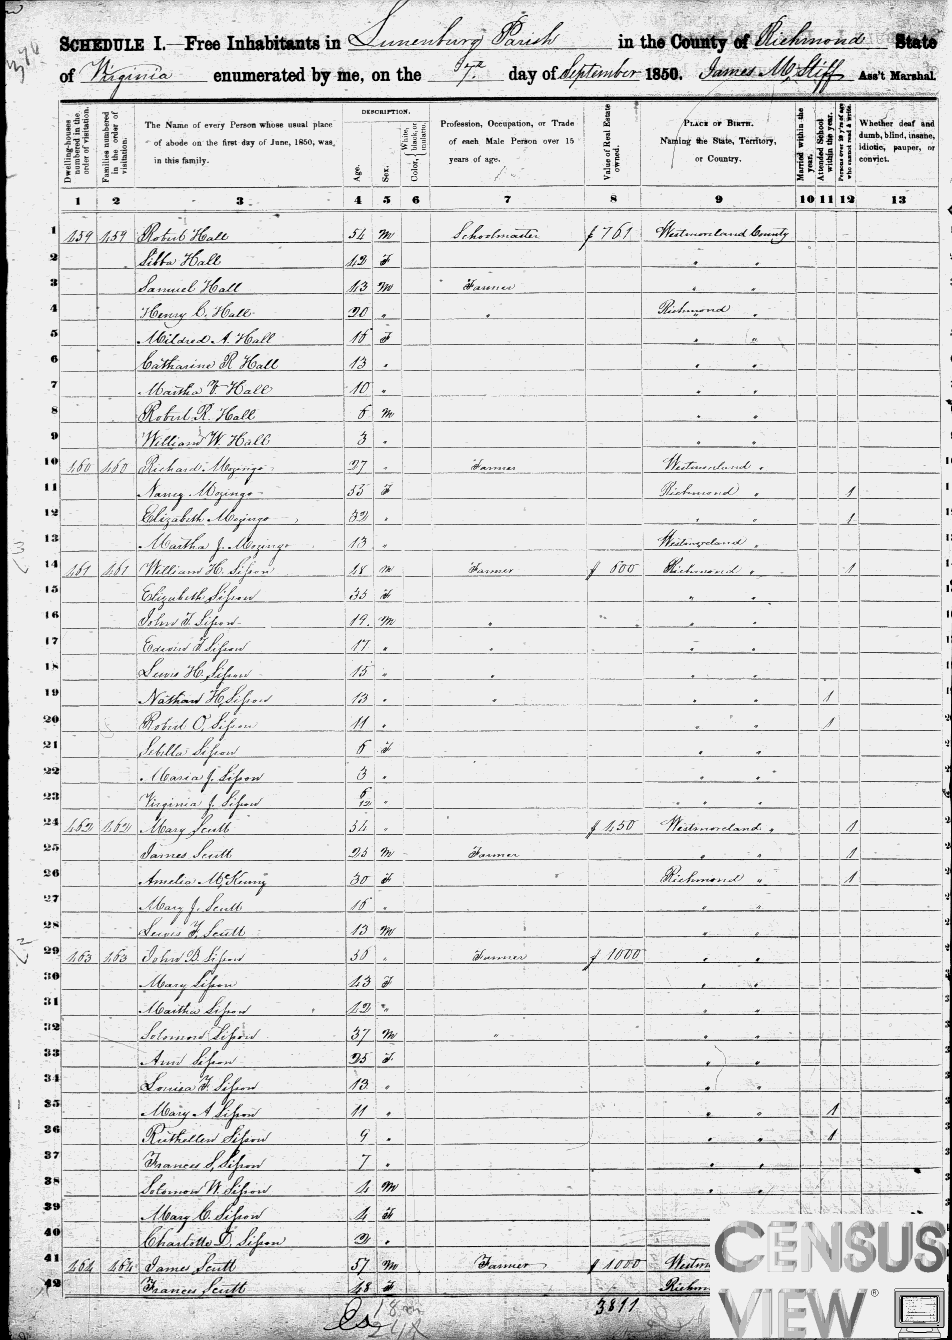 SCHEDULE I.—Free Inhabitants in Lunenburg Parish in the County of Richmond State
of Virginia enumerated by me, on the 7th day of September 1850. James M. Stiff Ass't Marshal.
Dwelling-houses numbered in the order of visitation. Families numbered in the order of visitation. The Name of every Person whose usual place of abode on the first day of June, 1850, was in this family. DESCRIPTION. Age. Sex. Color, White, black, or mulatto. Profession, Occupation, or Trade of each Male Person over 15 years of age. Value of Real Estate owned. PLACE OF BIRTH. Naming the State, Territory, or Country. Married within the year. Attended School within the year. Persons over 20 y'rs of age who cannot read & write. Whether deaf and dumb, blind, insane, idiotic, pauper, or convict.
1 2 3 4 5 6 7 8 9 10 11 12 13
1 459 459 Robert Hall 54 M Schoolmaster $ 761 Westmoreland County
2 Sibba Hall 42 F " "
3 Samuel Hall 13 M Farmer " "
4 Henry C. Hall 20 " " Richmond "
5 Mildred A. Hall 16 F " "
6 Catharine R Hall 13 " " "
7 Martha V. Hall 10 " " "
8 Robert R. Hall 6 M " "
9 William W. Hall 3 " " "
10 460 460 Richard Mozingo 27 " Farmer Westmoreland "
11 Nancy Mozingo 55 F Richmond " 1
12 Elizabeth Mozingo 32 " " " 1
13 Martha J. Mozingo 13 " Westmoreland "
14 461 461 William H. Sisson 48 M Farmer $ 600 Richmond " 1
15 Elizabeth Sisson 35 F " "
16 John T. Sisson 19 M " " "
17 Edwin F. Sisson 17 " " " "
18 Lewis H. Sisson 15 " " " "
19 Nathan H. Sisson 13 " " " " 1
20 Robert O. Sisson 11 " " " 1
21 Sibella Sisson 6 F " "
22 Maria J. Sisson 3 " " "
23 Virginia J. Sisson 6/12 " " "
24 462 462 Mary Scutt 54 " $ 450 Westmoreland " 1
25 James Scutt 25 M Farmer " " 1
26 Amelia McKenny 30 F Richmond " 1
27 Mary J. Scutt 16 " " "
28 Lewis F. Scutt 13 M " "
29 463 463 John B. Sisson 50 " Farmer $ 1000 " "
30 Mary Sisson 43 F " "
31 Martha Sisson 42 " " "
32 Solomon Sisson 37 M " " "
33 Ann Sisson 25 F " "
34 Louisa F. Sisson 13 " " "
35 Mary A Sisson 11 " " " 1
36 Ruthellen Sisson 9 " " " 1
37 Frances S. Sisson 7 " " "
38 Solomon W. Sisson 4 M " "
39 Mary C. Sisson 4 F
40 Charlotte D. Sisson 2 "
41 464 464 James Scutt 57 M Farmer $ 1000 Westm
42 Frances Scutt 48 F Richm
3811
CENSUS
VIEW®